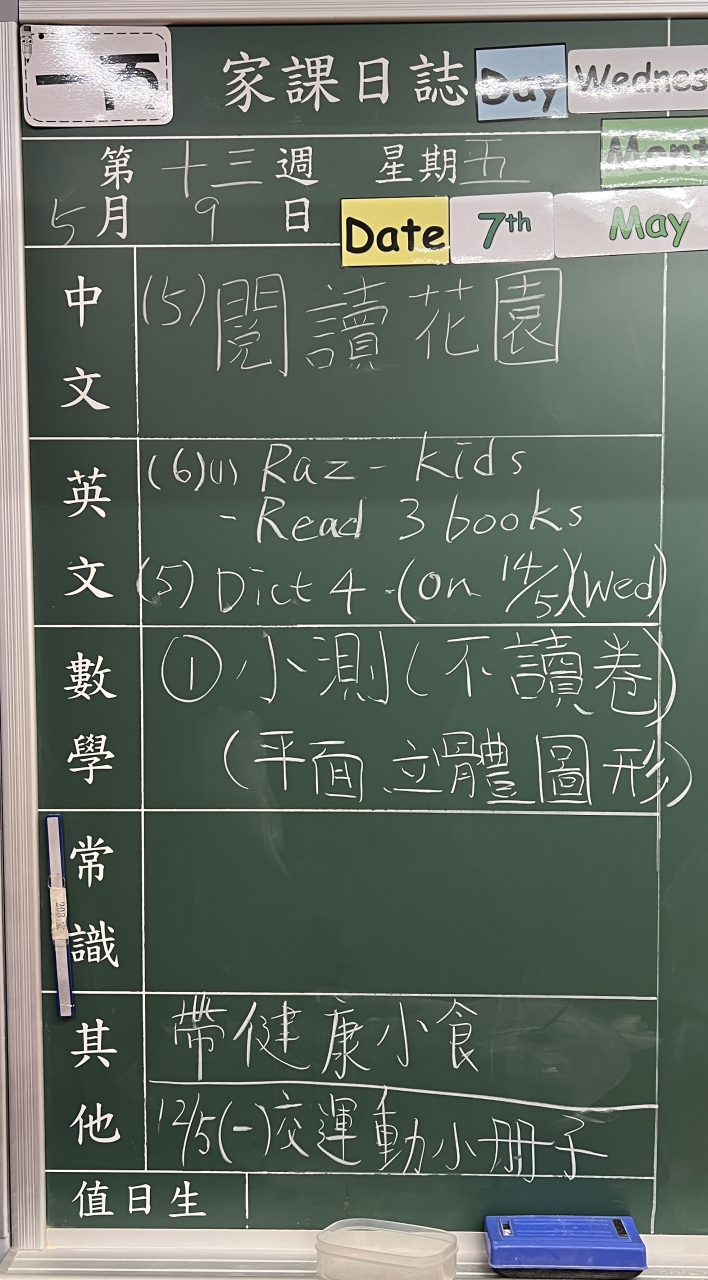 家課日誌 Day Wednes
第十三週 星期五 Mont
5月9日 Date 7th May
中文 (5) 閱讀花園
英文 (6)(1) Raz-kids
- Read 3 books
(5) Dict 4 (on 14/5)(Wed)
數學 ① 小測(不讀卷)
(平面立體圖形)
常識
其他 帶健康小食
12/5(一)交運動小冊子
值日生